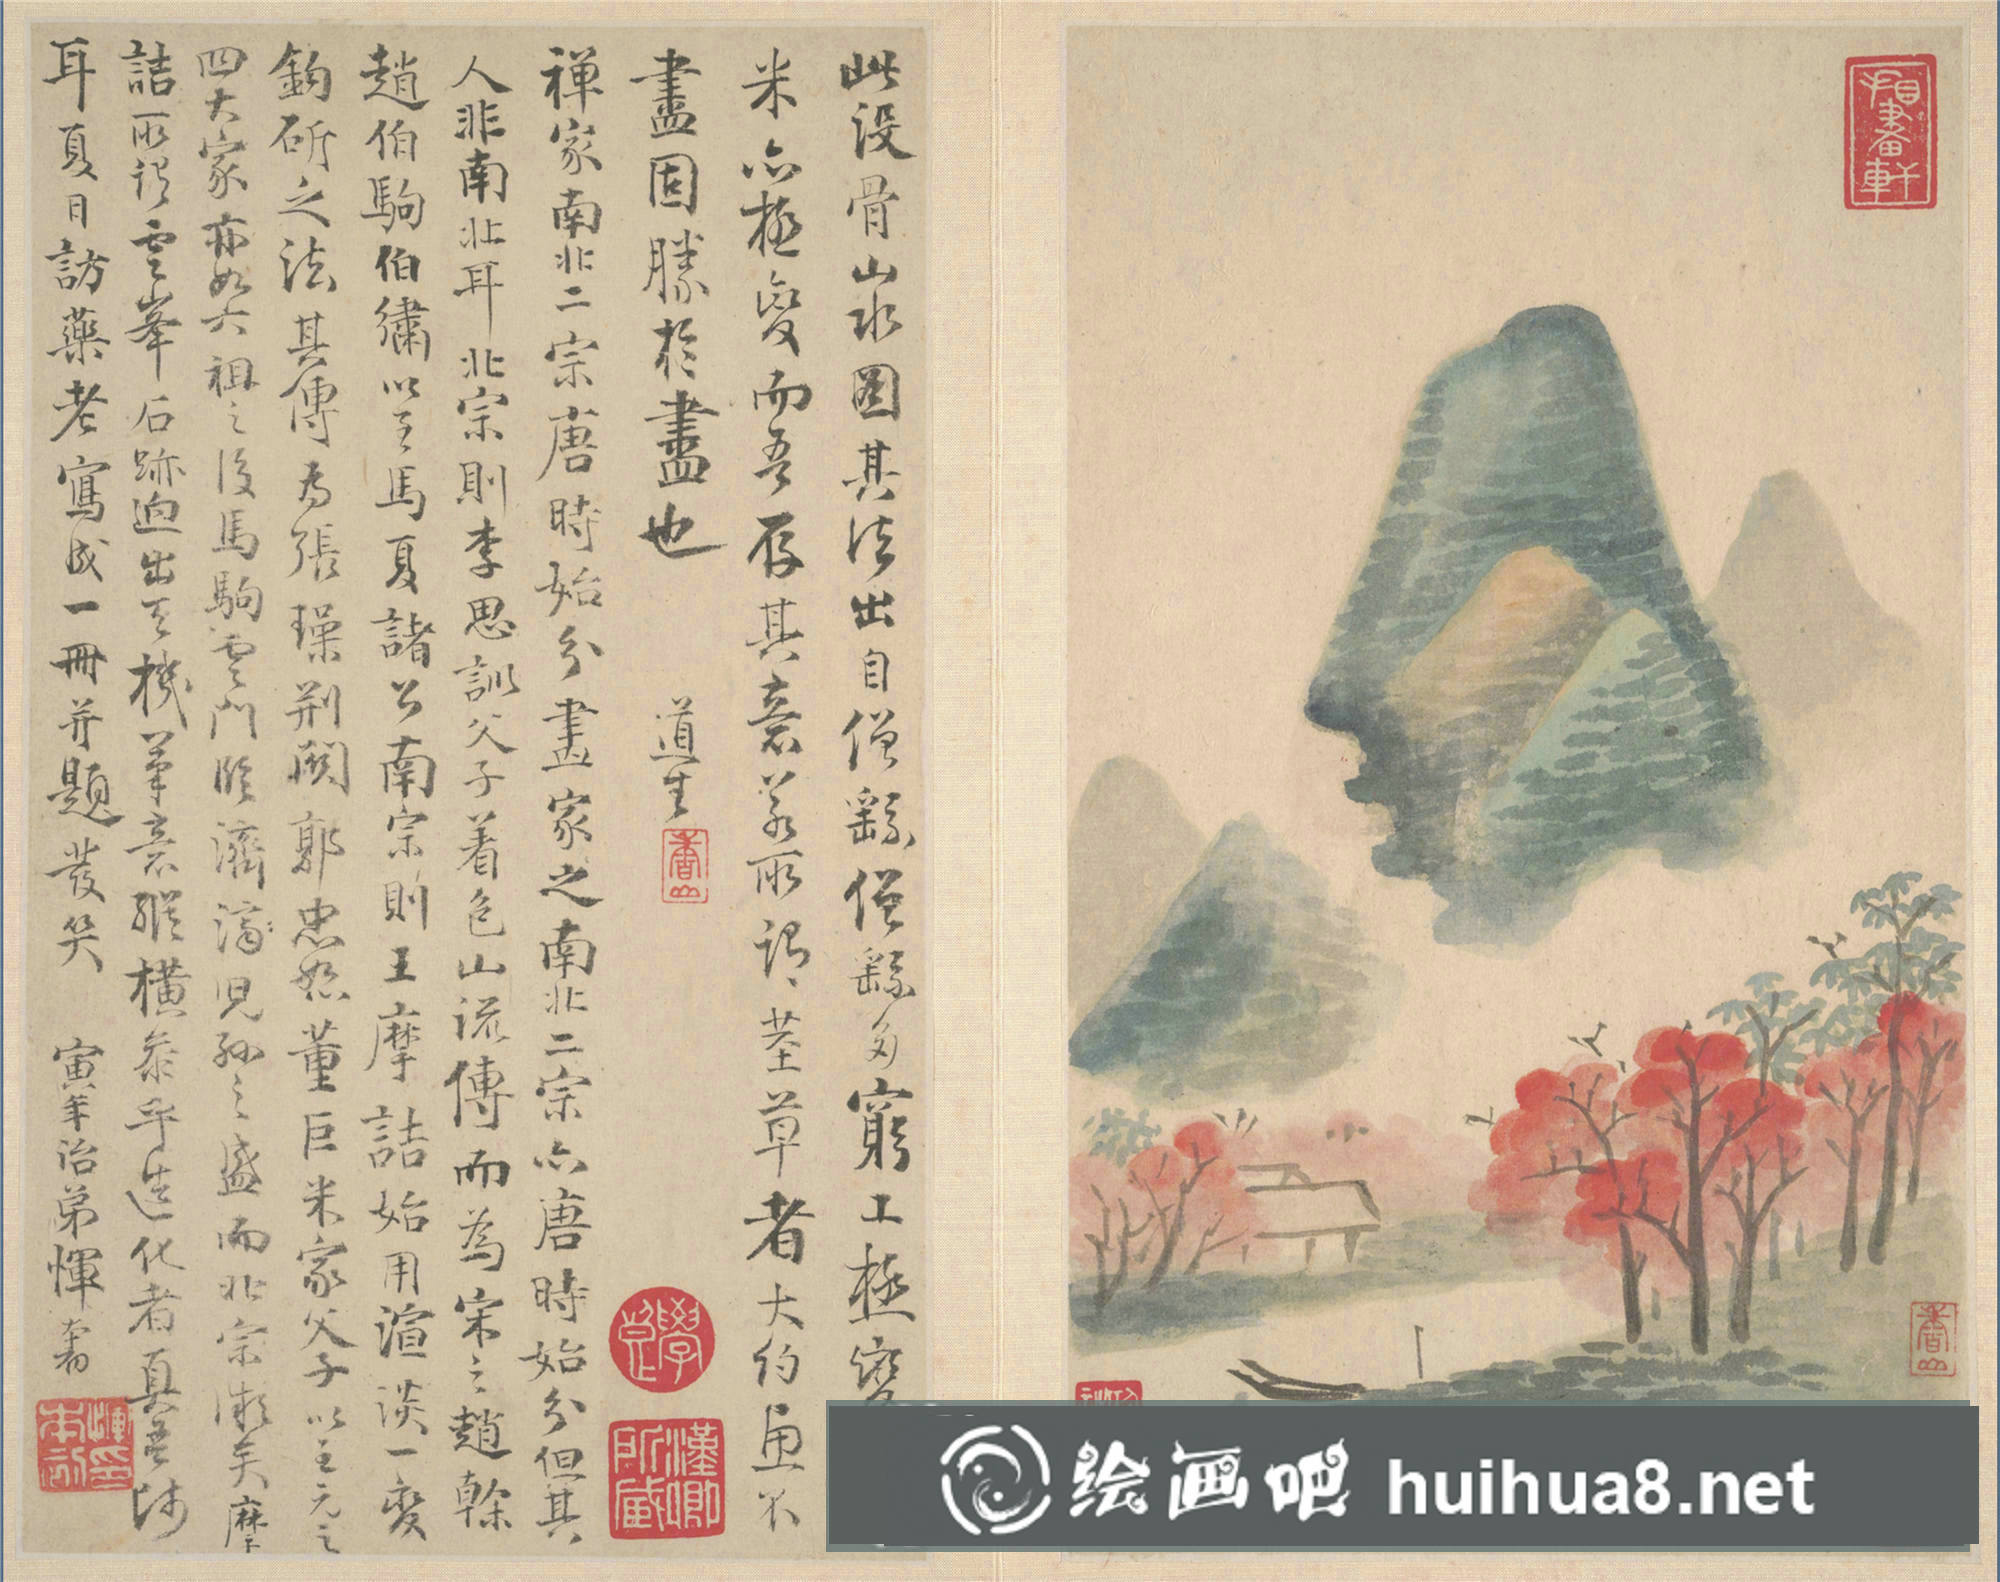 此设骨山水图其法出自僧繇僧繇多穷工極變
米亦極變而吾存其意若所謂莖草者大約画不
畫固勝於畫也
道生
禅家南北二宗唐時始分畫家之南北二宗亦唐時始分但其
人非南北耳北宗則李思訓父子着色山流傳而為宋之趙幹
趙伯駒伯驌以至馬夏諸公南宗則王摩詰始用渲淡一變
鈎斫之法其傳為張璪荊關郭忠恕董巨米家父子以至元之
四大家亦如六祖之後馬駒雲門臨濟濟兒孫之盛而北宗漸矣摩
詰所謂雲峯石跡迥出天機筆意縱橫参乎造化者真吾師
耳夏日訪藥老寫成一冊并題發笑
寅年治弟惲
書畫軒
香山
香山
漢卿所藏
绘画吧 huihua8.net